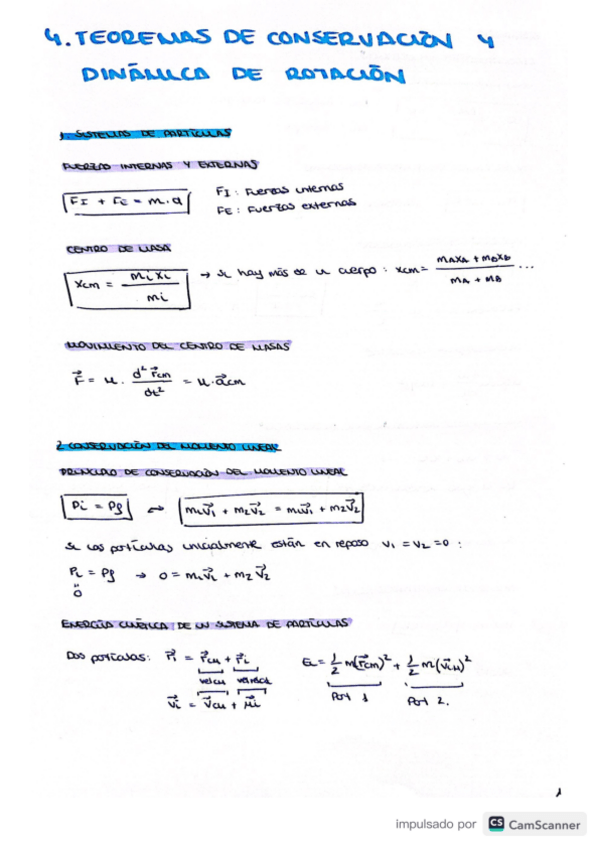 4. TEOREMAS DE CONSERVACIÓN Y
DINÁMICA DE ROTACIÓN
1 SISTEMAS DE PARTÍCULAS
FUERZAS INTERNAS Y EXTERNAS
FI + FE = m.a
FI: Fuerzas internas
FE: Fuerzas externas
CENTRO DE MASA
xcm = mi xi / mi → si hay más de un cuerpo: xcm = mAxA + mBxB / mA + mB ...
MOVIMIENTO DEL CENTRO DE MASAS
F⃗ = M · d² r⃗cm / dt² = M · a⃗cm
2 CONSERVACIÓN DEL MOMENTO LINEAR
PRINCIPIO DE CONSERVACIÓN DEL MOMENTO LINEAR
Pi = Pf ⇔ m₁v⃗₁ + m₂v⃗₂ = m₁v⃗₁ + m₂v⃗₂
Si las partículas inicialmente están en reposo v₁ = v₂ = 0 :
Pi = Pf → 0 = m₁v⃗₁ + m₂v⃗₂
0
ENERGÍA CINÉTICA DE UN SISTEMA DE PARTÍCULAS
Dos partículas: r⃗i = r⃗cm + r⃗i Ec = 1/2 m(r⃗cm)² + 1/2 m(v⃗cm)²
Part 1 Part 2.
v⃗i = v⃗cm + μ⃗i
1
impulsado por CS CamScanner